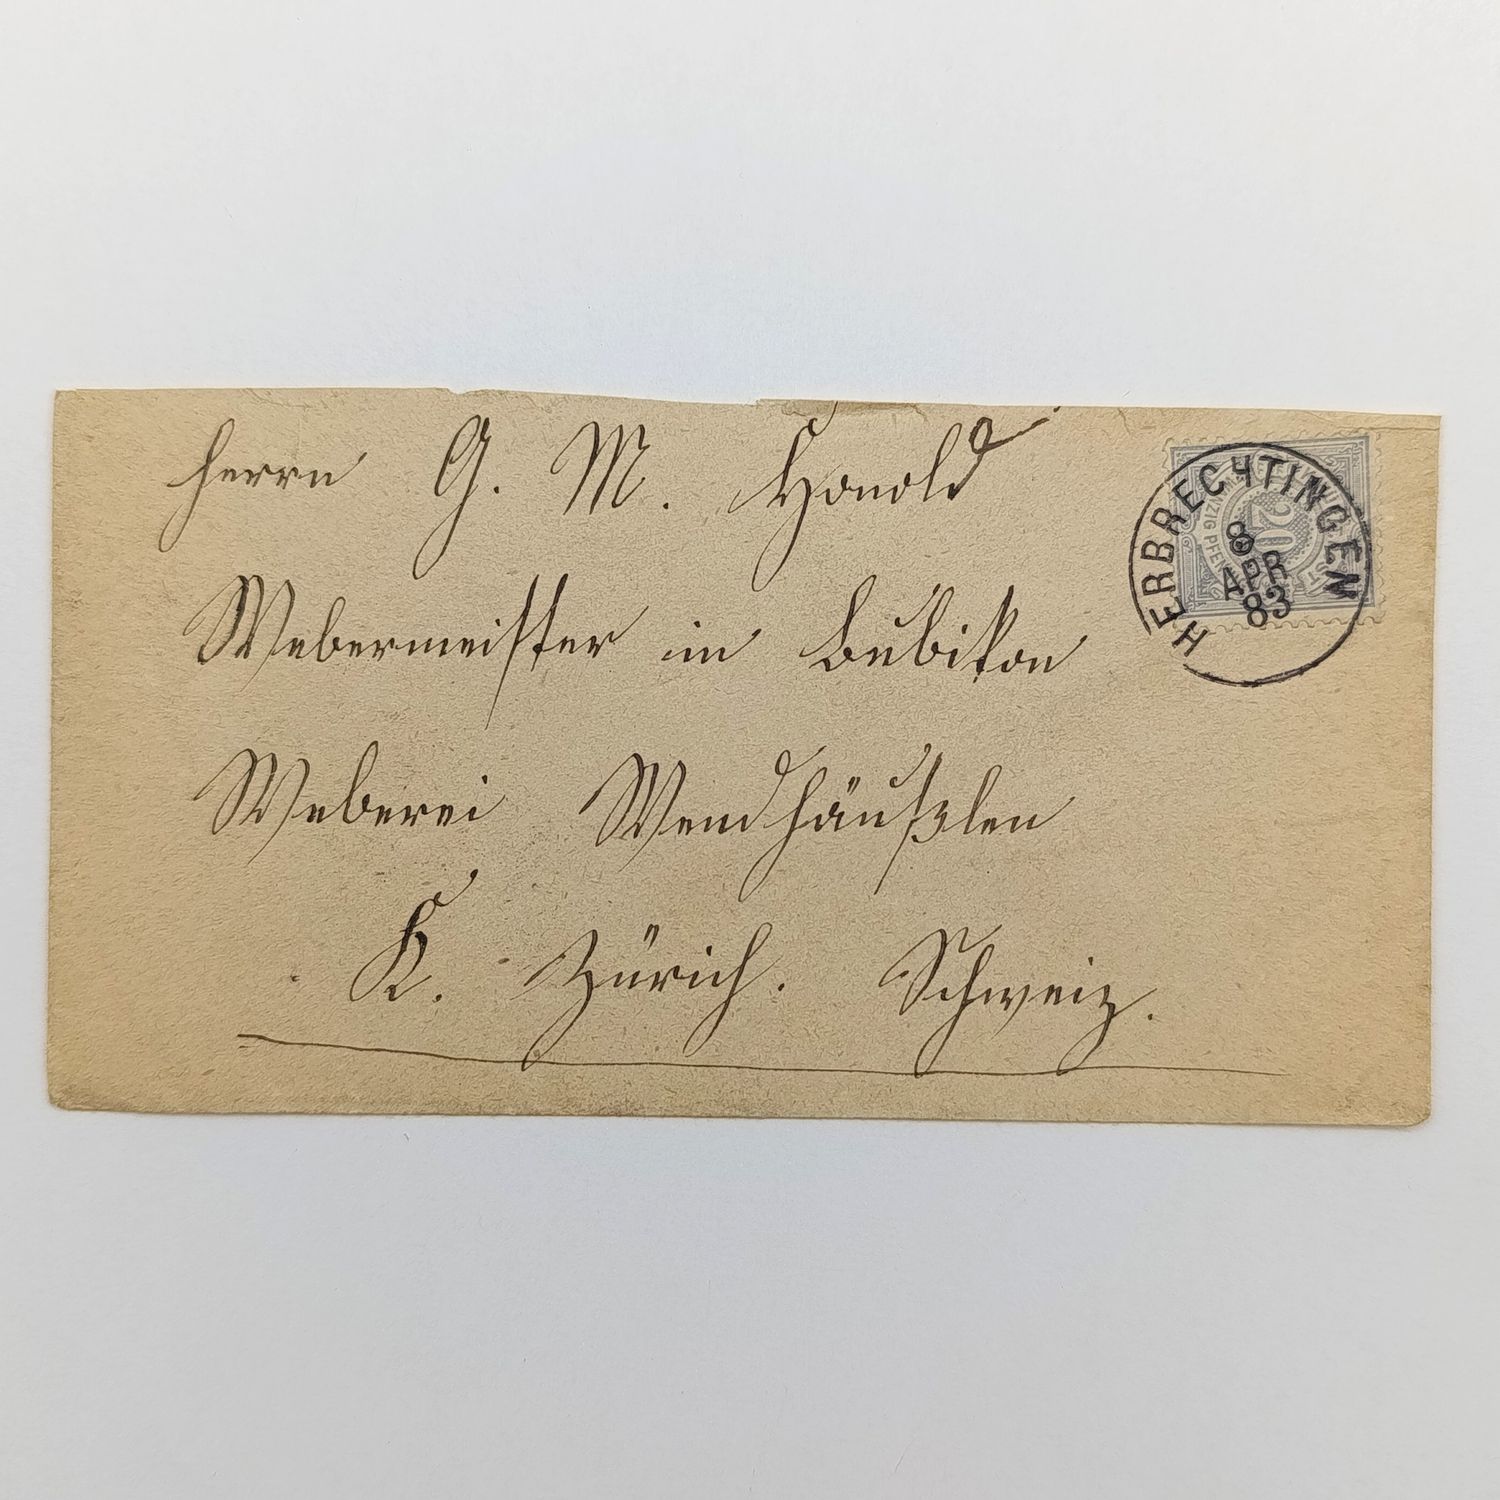 Herrn G. M. Honold
Webermeister in Bubikon
Weberei Wendhäußlen
K. Zürich. Schweiz.
HERBRECHTINGEN
8
APR
83
20
NZIG PFEN